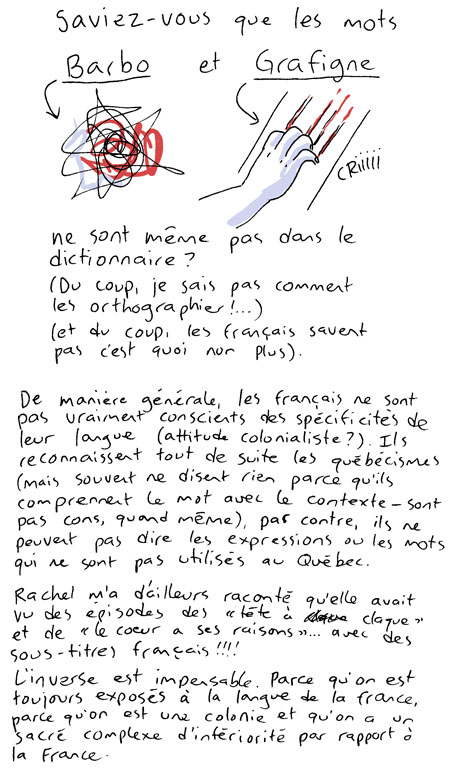 Saviez-vous que les mots
Barbo et Grafigne
CRiiiii
ne sont même pas dans le
dictionnaire ?
(Du coup, je sais pas comment
les orthographier !...)
(et du coup, les français savent
pas c'est quoi non plus).
De manière générale, les français ne sont
pas vraiment conscients des spécificités de
leur langue (attitude colonialiste ?). Ils
reconnaissent tout de suite les québécismes
(mais souvent ne disent rien parce qu'ils
comprennent le mot avec le contexte - sont
pas cons, quand même), par contre, ils ne
peuvent pas dire les expressions ou les mots
qui ne sont pas utilisés au Québec.
Rachel m'a d'ailleurs raconté qu'elle avait
vu des épisodes des "tête à claque"
et de "le coeur a ses raisons"... avec des
sous-titres français !!!!
L'inverse est impensable. Parce qu'on est
toujours exposés à la langue de la france,
parce qu'on est une colonie et qu'on a un
sacré complexe d'infériorité par rapport à
la France.